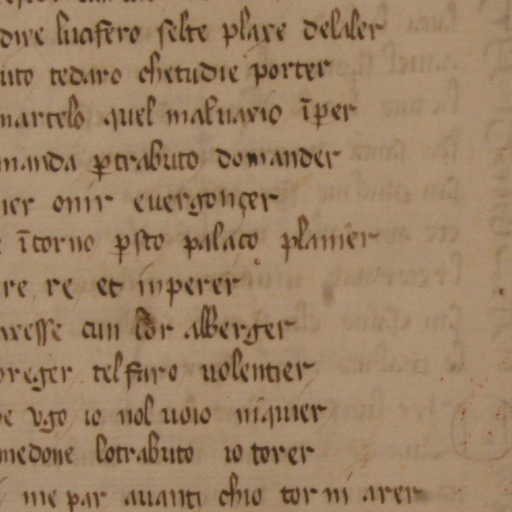 dire lucifero selte plaxe delaler
uto tedaro chetudie porter
martelo quel maluaxio īper
manda ꝑtrabuto domander
ier onir euergonçer
ītorno ꝑsto palaço planier
re re et inperer
auesse cun lor alberger
preger telfaro uolentier
ugo io nol uoio niquier
medone lotrabuto io torer
me par auanti chio tor ni arer